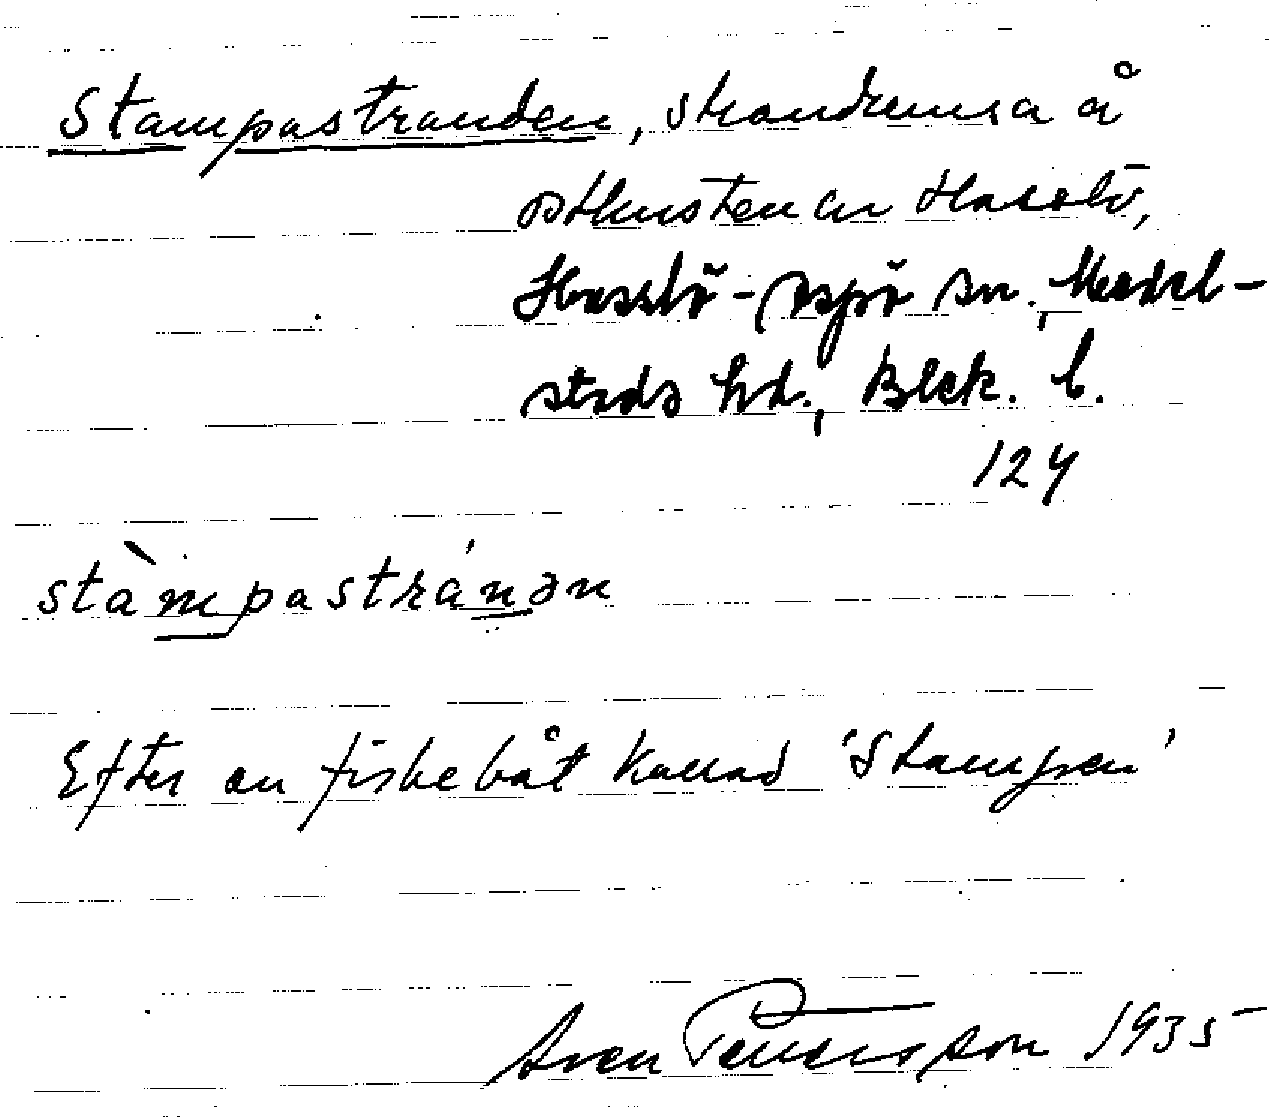 Stampastranden, strandremsa å
ostkusten av Hasslö,
Hasslö-Aspö sn., Medel-
stads hd., Blek. l.
124
stàmpastránən
Efter en fiskebåt kallad 'Stampen'
Sven Pettersson 1935